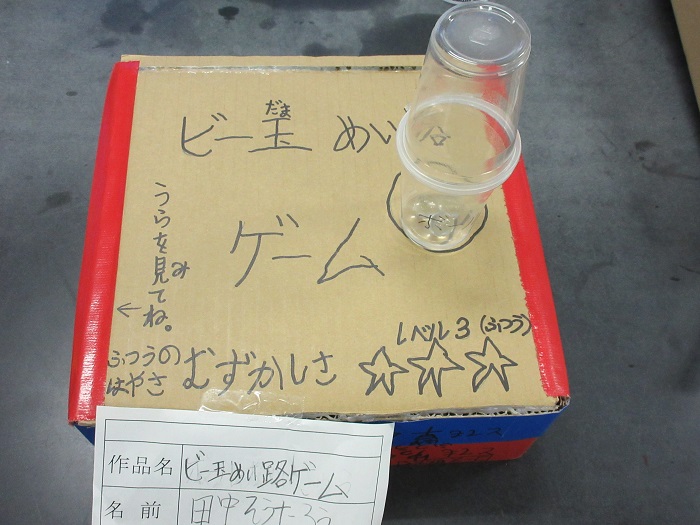 だま
ビー玉 めい
ゲーム
うらを見てね。
み
←
レベル3(ふつう)
ふつうの
はやさ
むずかしさ ☆☆☆
コース
コース
作品名 ビー玉めい路ゲーム
名前 田中そうたろう